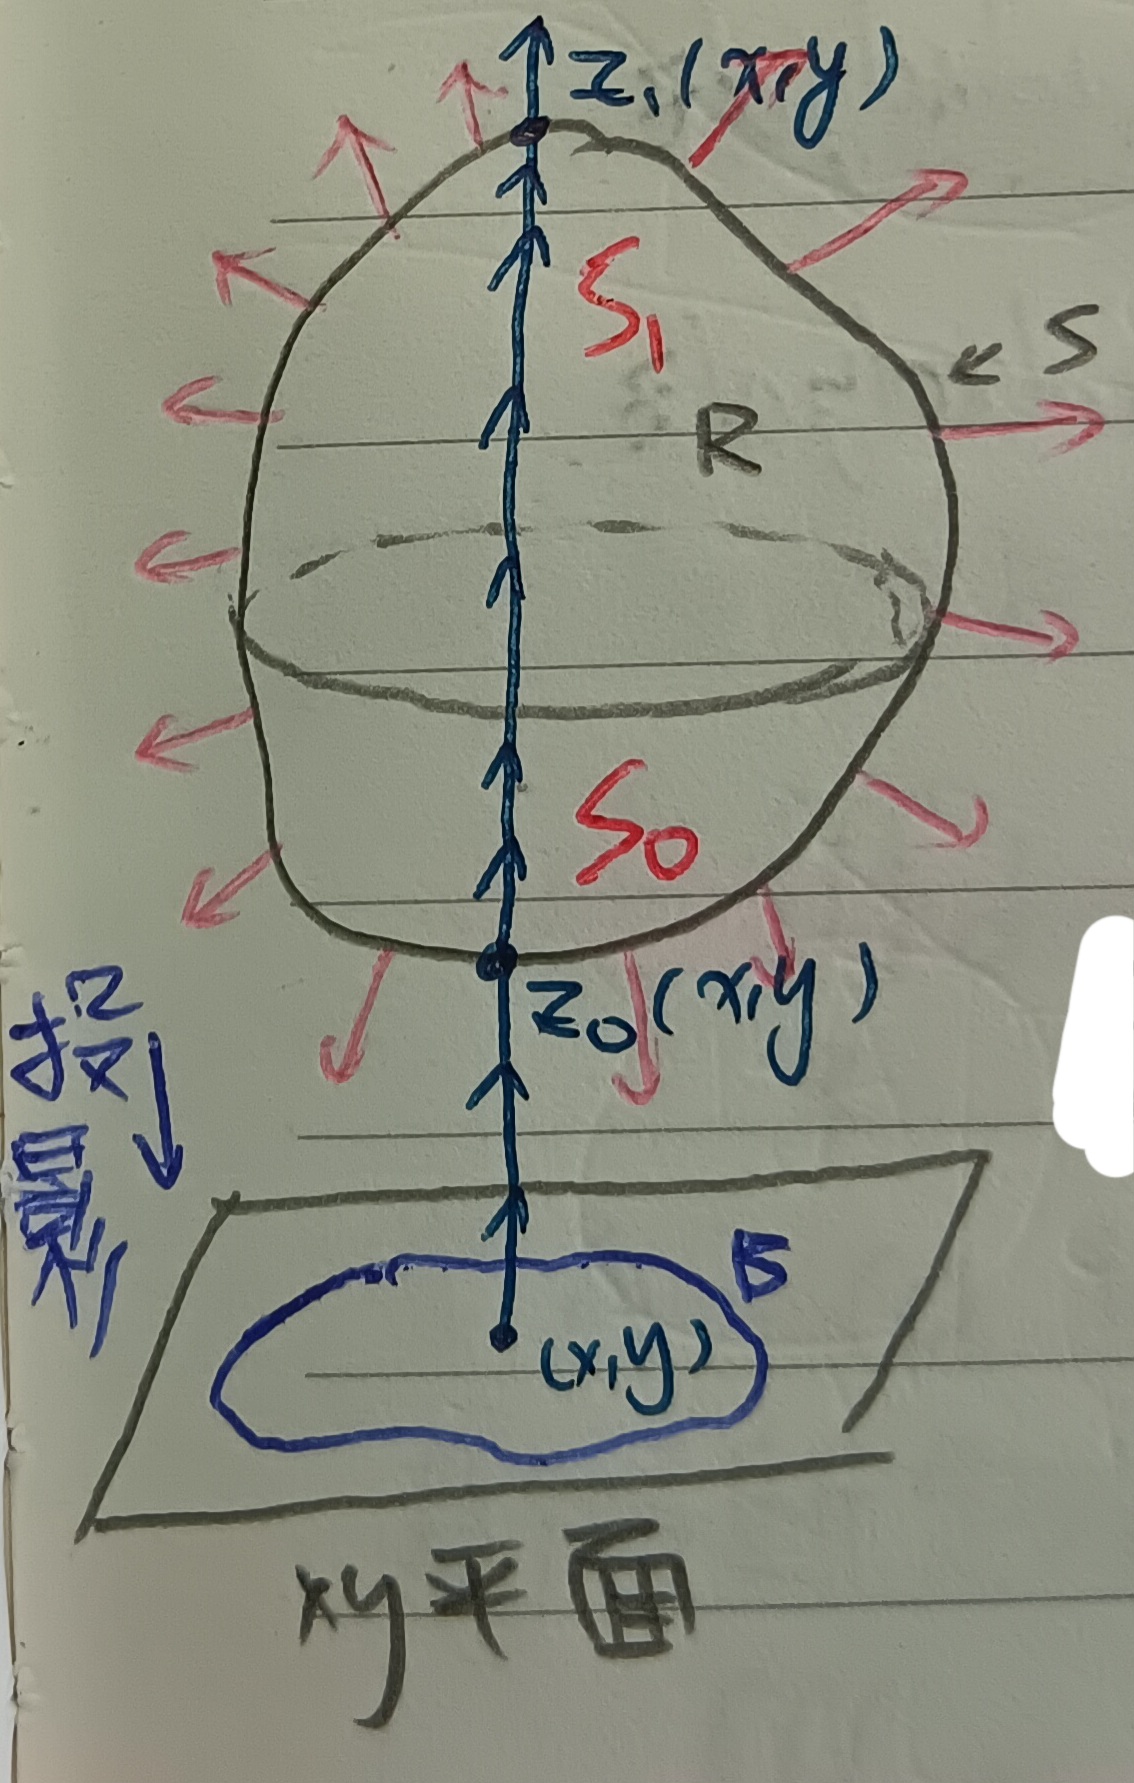 z₁(x,y)
S₁
← S
R
S₀
z₀(x,y)
投影
B
(x,y)
xy平面